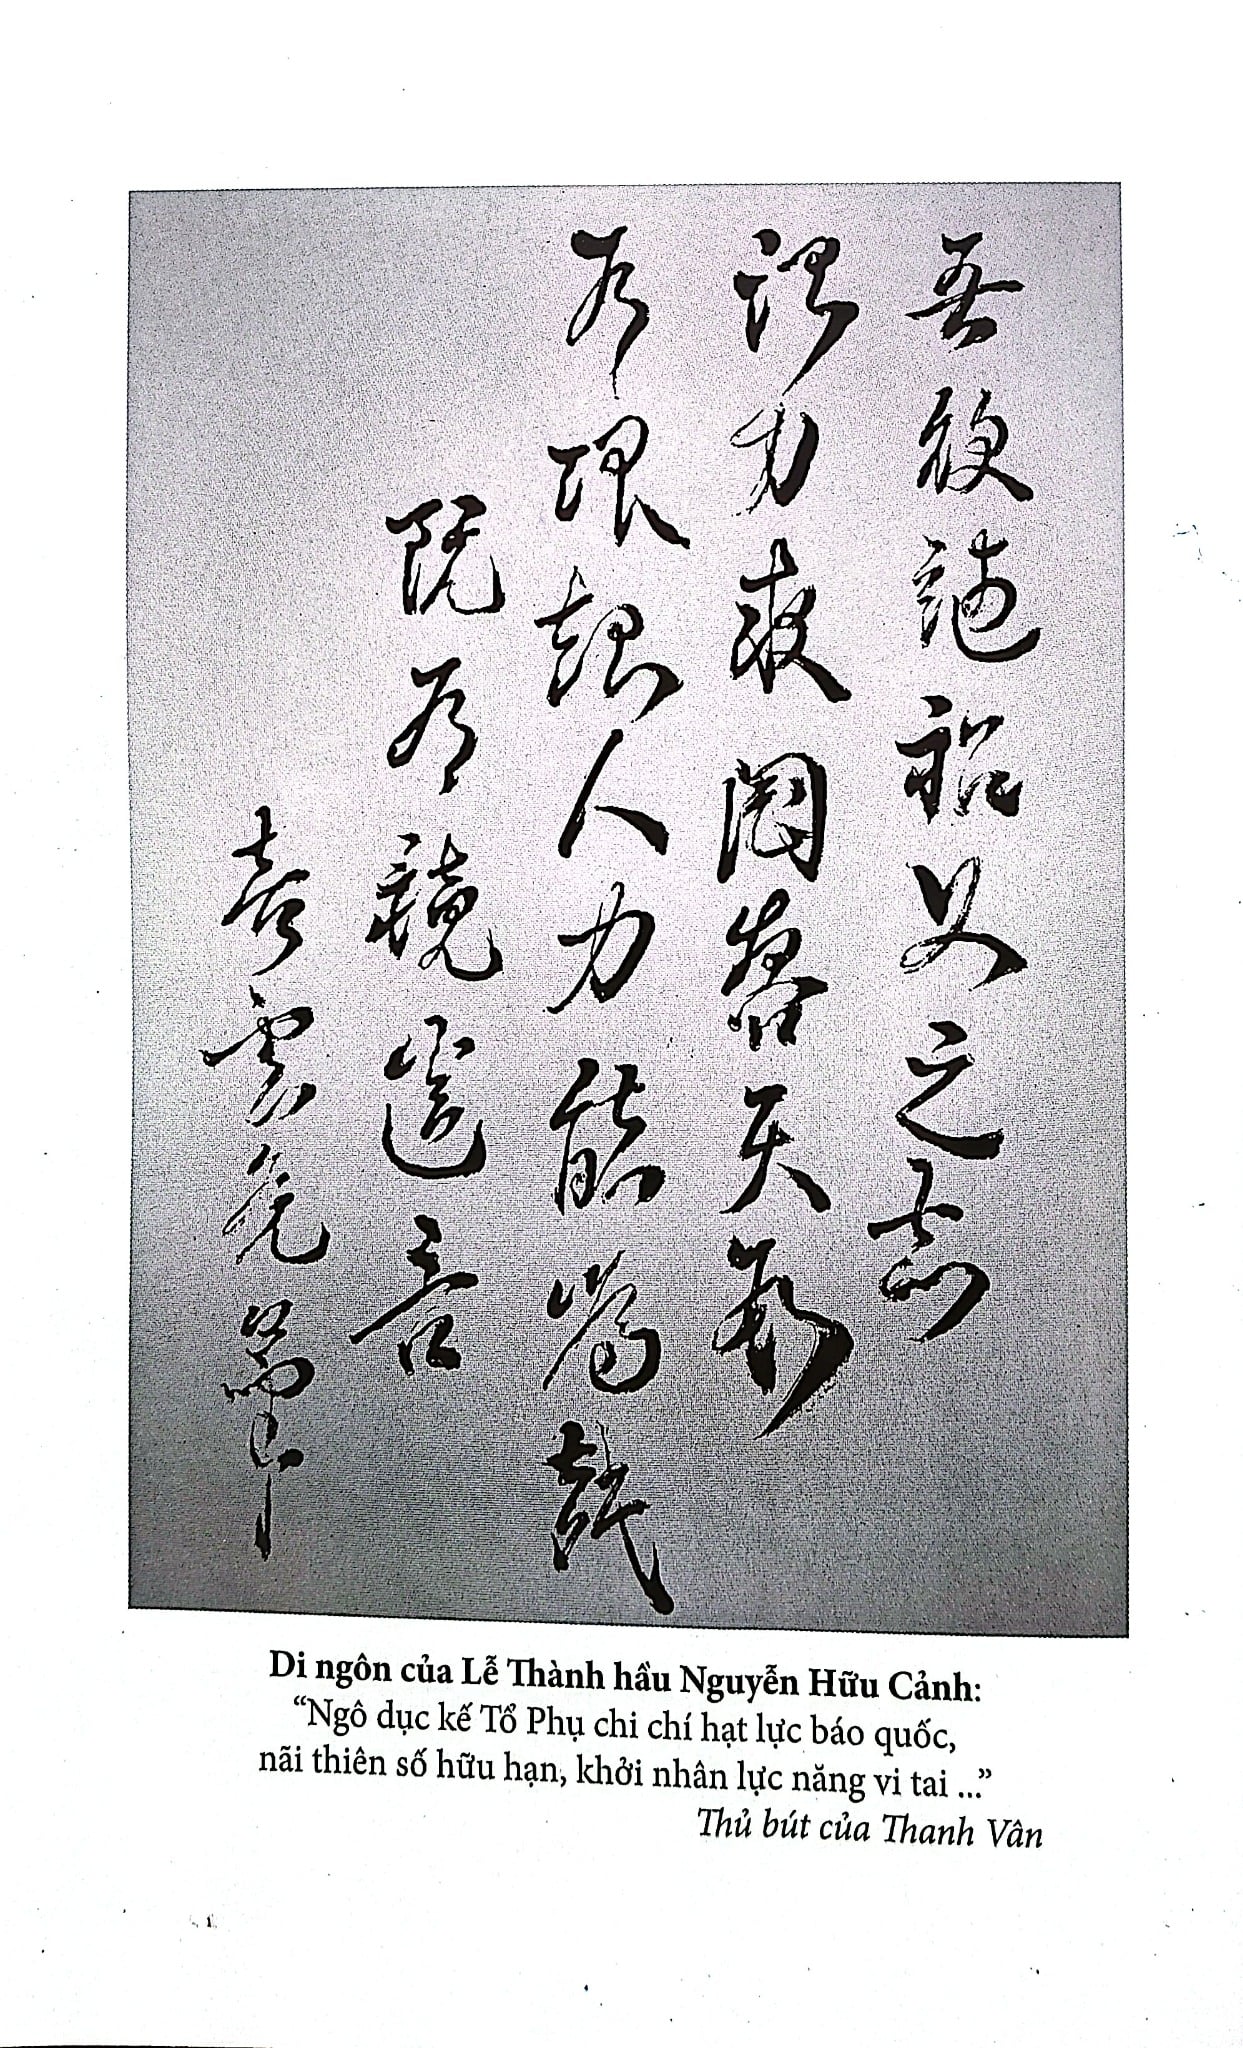 吾欲繼祖父之志
力國天数
有限人力能為哉
阮有鏡遺言
雲筆
Di ngôn của Lễ Thành hầu Nguyễn Hữu Cảnh:
“Ngô dục kế Tổ Phụ chi chí hạt lực báo quốc,
nãi thiên số hữu hạn, khởi nhân lực năng vi tai ...”
Thủ bút của Thanh Vân